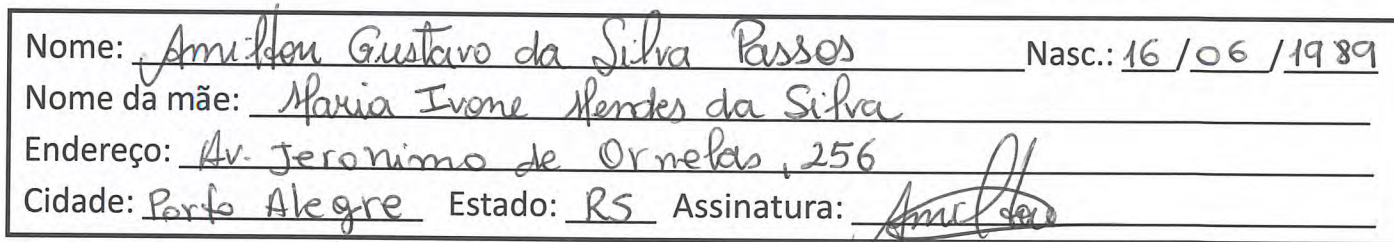 Nome: Amilton Gustavo da Silva Passos Nasc.: 16/06/1989
Nome da mãe: Maria Ivone Mendes da Silva
Endereço: Av. Jeronimo de Ornelas, 256
Cidade: Porto Alegre Estado: RS Assinatura: Amilton